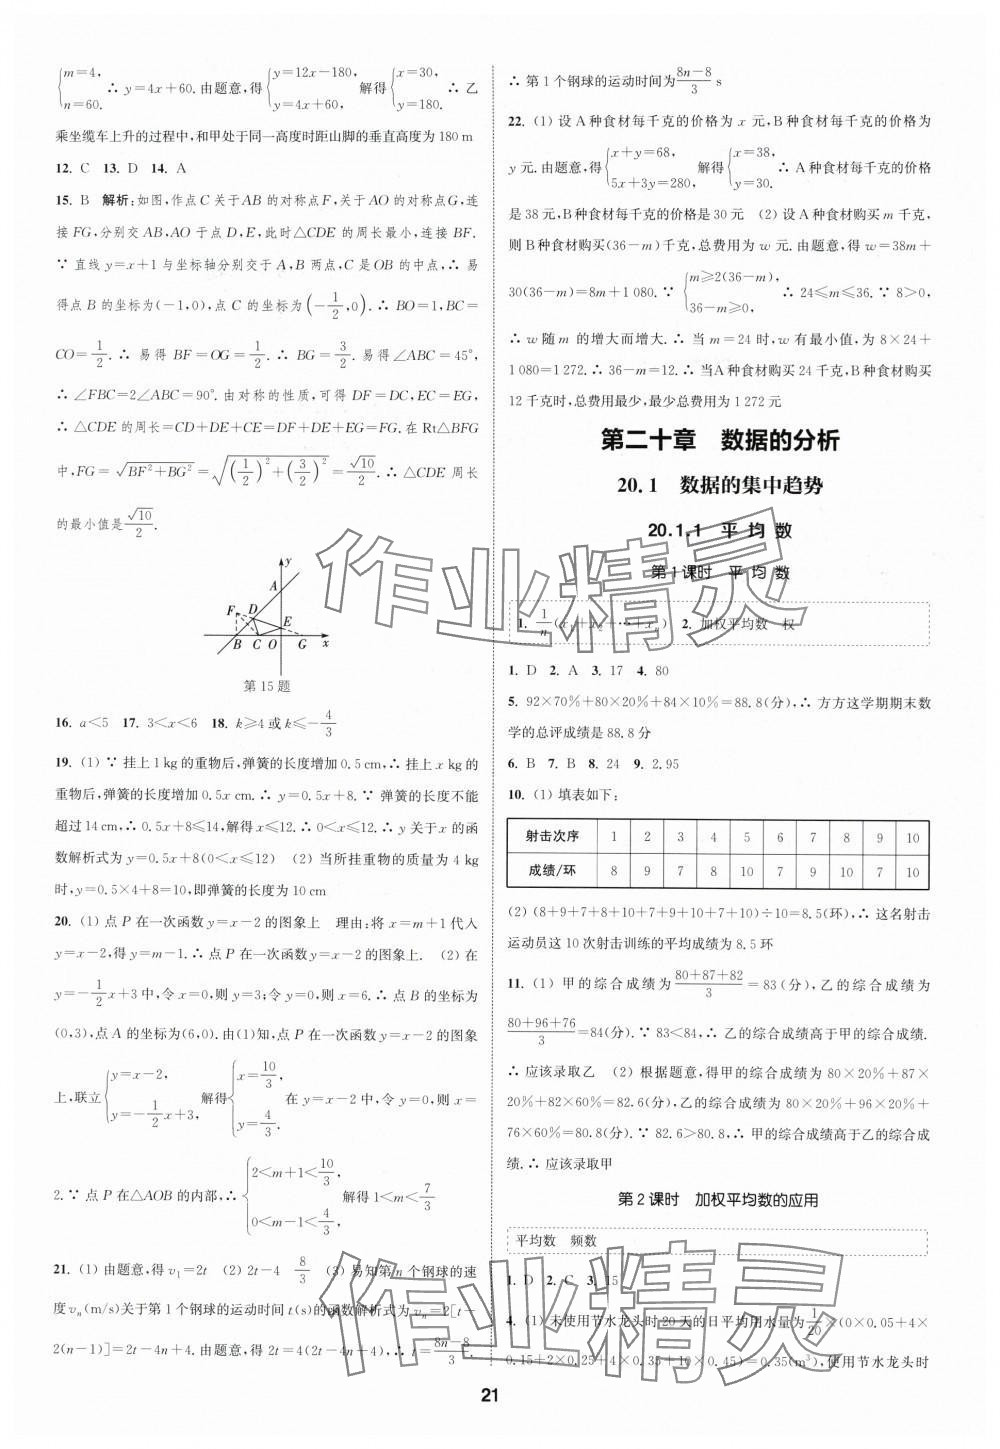 {m=4, n=60. ∴ y=4x+60. 由题意,得 {y=12x-180, y=4x+60, 解得 {x=30, y=180. ∴ 乙
乘坐缆车上升的过程中,和甲处于同一高度时距山脚的垂直高度为 180 m
12. C 13. D 14. A
15. B 解析:如图,作点 C 关于 AB 的对称点 F,关于 AO 的对称点 G,连
接 FG,分别交 AB,AO 于点 D,E,此时△CDE 的周长最小,连接 BF.
∵ 直线 y=x+1 与坐标轴分别交于 A,B 两点,C 是 OB 的中点,∴ 易
得点 B 的坐标为(-1,0),点 C 的坐标为(-1/2,0). ∴ BO=1,BC=
CO=1/2. ∴ 易得 BF=OG=1/2. ∴ BG=3/2. 易得∠ABC=45°,
∴ ∠FBC=2∠ABC=90°. 由对称的性质,可得 DF=DC,EC=EG,
∴ △CDE 的周长=CD+DE+CE=DF+DE+EG=FG. 在 Rt△BFG
中,FG=√(BF²+BG²)=√((1/2)²+(3/2)²)=√10/2. ∴ △CDE 周长
的最小值是 √10/2.
y
A
F D
E
B C O G x
第 15 题
16. a<5 17. 3<x<6 18. k≥4 或 k≤-4/3
19. (1) ∵ 挂上 1 kg 的重物后,弹簧的长度增加 0.5 cm,∴ 挂上 x kg 的
重物后,弹簧的长度增加 0.5x cm. ∴ y=0.5x+8. ∵ 弹簧的长度不能
超过 14 cm,∴ 0.5x+8≤14,解得 x≤12. ∴ 0<x≤12. ∴ y 关于 x 的函
数解析式为 y=0.5x+8(0<x≤12) (2) 当所挂重物的质量为 4 kg
时,y=0.5×4+8=10,即弹簧的长度为 10 cm
20. (1) 点 P 在一次函数 y=x-2 的图象上 理由:将 x=m+1 代入
y=x-2,得 y=m-1. ∴ 点 P 在一次函数 y=x-2 的图象上. (2) 在
y=-1/2x+3 中,令 x=0,则 y=3;令 y=0,则 x=6. ∴ 点 B 的坐标为
(0,3),点 A 的坐标为(6,0). 由(1)知,点 P 在一次函数 y=x-2 的图象
上,联立 {y=x-2, y=-1/2x+3, 解得 {x=10/3, y=4/3. 在 y=x-2 中,令 y=0,则 x=
2. ∵ 点 P 在△AOB 的内部,∴ {2<m+1<10/3, 0<m-1<4/3, 解得 1<m<7/3
21. (1) 由题意,得 v₁=2t (2) 2t-4 8/3 (3) 易知第 n 个钢球的速
度 vₙ(m/s)关于第 1 个钢球的运动时间 t(s)的函数解析式为 vₙ=2[t-
2(n-1)]=2t-4n+4. 由题意,得 2t=4(2t-4n+4),∴ t=(8n-8)/3.
∴ 第 1 个钢球的运动时间为 (8n-8)/3 s
22. (1) 设 A 种食材每千克的价格为 x 元,B 种食材每千克的价格为
y 元. 由题意,得 {x+y=68, 5x+3y=280, 解得 {x=38, y=30. ∴ A 种食材每千克的价格
是 38 元,B 种食材每千克的价格是 30 元 (2) 设 A 种食材购买 m 千克,
则 B 种食材购买(36-m)千克,总费用为 w 元. 由题意,得 w=38m+
30(36-m)=8m+1 080. ∵ {m≥2(36-m), 36-m≥0, ∴ 24≤m≤36. ∵ 8>0,
∴ w 随 m 的增大而增大. ∴ 当 m=24 时,w 有最小值,为 8×24+
1 080=1 272. ∴ 36-m=12. ∴ 当 A 种食材购买 24 千克,B 种食材购买
12 千克时,总费用最少,最少总费用为 1 272 元
第二十章 数据的分析
20.1 数据的集中趋势
20.1.1 平均数
第 1 课时 平均数
1. 1/n(x₁+x₂+…+xₙ) 2. 加权平均数 权
1. D 2. A 3. 17 4. 80
5. 92×70%+80×20%+84×10%=88.8(分),∴ 方方这学期期末数
学的总评成绩是 88.8 分
6. B 7. B 8. 24 9. 2.95
10. (1) 填表如下:
射击次序 1 2 3 4 5 6 7 8 9 10
成绩/环 8 9 7 8 10 7 9 10 7 10
(2) (8+9+7+8+10+7+9+10+7+10)÷10=8.5(环),∴ 这名射击
运动员这 10 次射击训练的平均成绩为 8.5 环
11. (1) 甲的综合成绩为 (80+87+82)/3=83(分),乙的综合成绩为
(80+96+76)/3=84(分). ∵ 83<84,∴ 乙的综合成绩高于甲的综合成绩.
∴ 应该录取乙 (2) 根据题意,得甲的综合成绩为 80×20%+87×
20%+82×60%=82.6(分),乙的综合成绩为 80×20%+96×20%+
76×60%=80.8(分). ∵ 82.6>80.8,∴ 甲的综合成绩高于乙的综合成
绩. ∴ 应该录取甲
第 2 课时 加权平均数的应用
平均数 频数
1. D 2. C 3. 15
4. (1) 未使用节水龙头时 20 天的日平均用水量为 1/20×(0×0.05+4×
0.15+2×0.25+4×0.35+10×0.45)=0.35(m³),使用节水龙头时
21
作业精灵
作业精灵